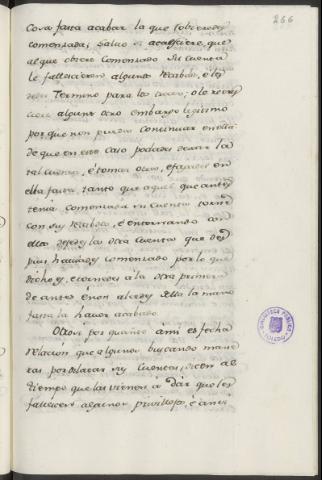 266
Cosa fasta acabar la que oviere
comenzada; salvo si acaesciere, que
al que obiere comenzado su cuenta
le fallecieren algunos recabdos, é les
dieren Termino para los traer; o le recres
ciere algun otro embargo legitimo
por que non puedan continuar en ella
de que en este caso podades dexar la
tal cuenta, é tomar otra, é fazer en
ella fasta tanto que aquel que antes
tenia comenzada su cuenta torne
con sus recabdos, é entornando con
ellos dexedes la otra Cuenta que des
pues haviedes comenzado por lo que
dicho es, é tornedes á la otra primera
de antes é non alcedes della la mano
fasta la haver acabado.
Otrosi por quanto á mi es fecha
relacion que algunos buscando mane
ras por dilatar sus Cuentas, dicen al
tiempo que las vienen á dar que les
fallecen algunos privillejos, é cartas
BIBLIOTECA PUBLICA
TOLEDO